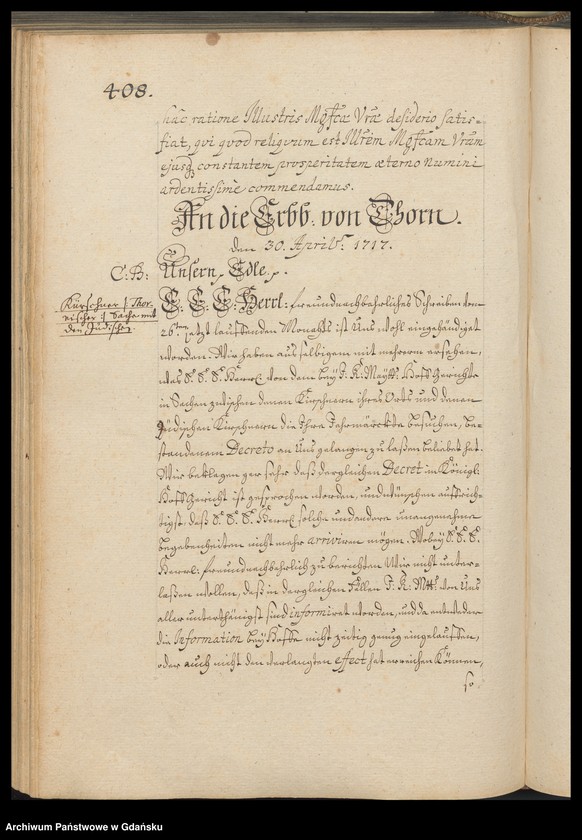 408.
hâc ratione Illustris Mgfca Vra desiderio satis=
fiat, qvi qvod reliqvum est Illrem Mgfcam Vram
ejusq constantem prosperitatem æterno Numini
ardentissime commendamus.
An die Erbb: von Thorn.
den 30. April: 1717.
C: B: Unsern, Edle,
Kürschner Thor-
nischer Sache mit
den Jüdischen
E. E. E. Herrl: freundnachbahrliches Schreiben vom
26 jetzt lauffenden Monahts ist Uns wohl eingehändiget
worden. Wir haben aus selbigem mit mehrern ersehen,
was E. E. E. Herrl. von dem bey I. K. Maytt. Hoff Gerichte
in Sachen zwischen denen Kürschnern ihres Orts und denen
Jüdischen Kürschnern die Ihre Jahrmärckte besuchen, er-
standenem Decreto an Uns gelangen zu laßen beliebet hat.
Wir beklagen gar sehr daß dergleichen Decret im Königl:
Hoff Gericht ist gesprochen worden, und wünschen auffrich-
tigst, daß E. E. E. Herrl solche und andere unangenehme
Begebenheiten nicht mehr arriviren mögen. Wobey E. E. E.
Herrl: freundnachbahrlich zu berichten Wir nicht unter-
laßen wollen, daß in dergleichen Fällen I. K. Mtt. von Uns
allerunterthänigst sind informiret worden, und da entweder
die Information bey Hoffe nicht zeitig genug eingelauffen,
oder auch nicht den verlangten effect hat erreichen können,
so
Archiwum Państwowe w Gdańsku